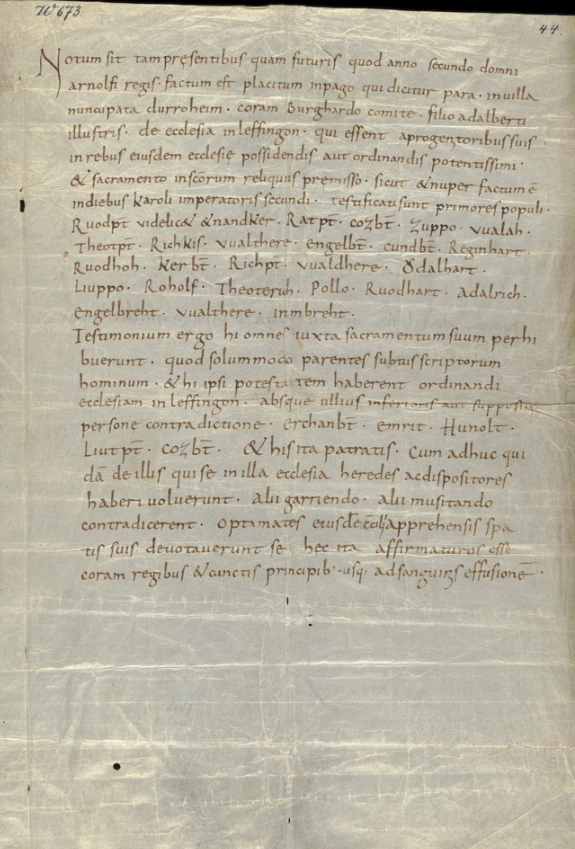 W 673.
44.
Notum sit tam pręsentibus quam futuris quod anno secundo domni
arnolfi regis · factum est placitum inpago qui dicitur para · in villa
nuncupata durroheim · coram Burghardo comite · filio adalberti
illustris · de ecclesia in leffingon · qui essent aprogenitoribus suis
in rebus eiusdem ecclesię possidendis aut ordinandis potentissimi ·
& sacramento inscōrum reliquiis pręmisso · sicut & nuper factum ē
indiebus karoli imperatoris secundi · testificati sunt primores populi ·
Ruodpt̄ videlic& &nandker · Ratpt̄ · cozbt̄ · Zuppo · vualah ·
Theotpt̄ · Richkis · vualthere · engelbt̄ · cundbt̄ · Reginhart
Ruodhoh · kerbt̄ · Richpt̄ · vualdhere · Odalhart ·
Liuppo · Roholf · Theoterih · Pollo · Ruodhart · Adalrich ·
engelbreht · vualthere · inmbreht ·
Testimonium ergo hi omnes iuxta sacramentum suum perhi
buerunt · quod solummodo parentes subtus scriptorum
hominum · & hi ipsi potestatem haberent ordinandi
ecclesiam in leffingon · absque ullius inferioris aut suppositę
persone contradictione · erchanbt̄ · emrit · Hunolt ·
Liutpt̄ · cozbt̄ · & his ita patratis · Cum adhuc qui
dā de illis qui se in illa ecclesia heredes ac dispositores
haberi voluerunt · alii garriendo · alii musitando
contradicerent · optimates eiusdē apprehensis spa
tis suis devotaverunt se hęc ita affirmaturos esse
coram regibus & cunctis principib' · usq; ad sanguinis effusionē ·